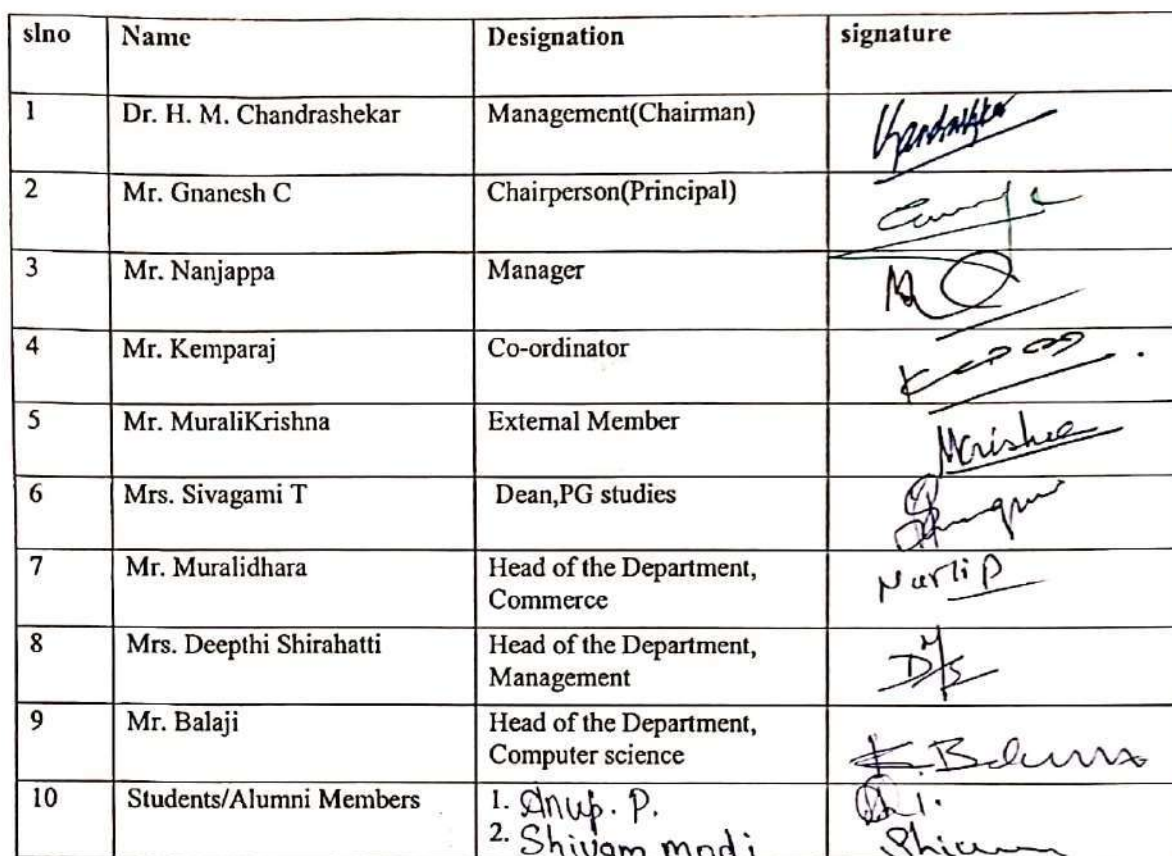 slno Name Designation signature
1 Dr. H. M. Chandrashekar Management(Chairman)
2 Mr. Gnanesh C Chairperson(Principal)
3 Mr. Nanjappa Manager
4 Mr. Kemparaj Co-ordinator
5 Mr. MuraliKrishna External Member
6 Mrs. Sivagami T Dean,PG studies
7 Mr. Muralidhara Head of the Department,
Commerce
8 Mrs. Deepthi Shirahatti Head of the Department,
Management
9 Mr. Balaji Head of the Department,
Computer science
10 Students/Alumni Members 1. Anup. P.
2. Shivam modi